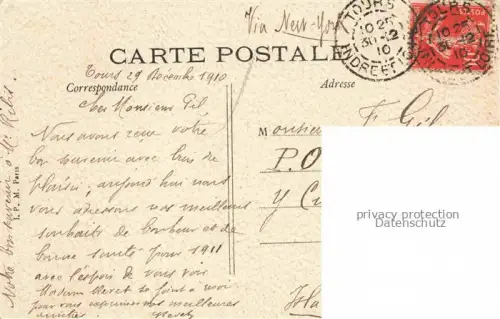 Via New-York
TOURS
10 25
30 12
10
INDRE ET
TOURS
10 25
30 12
10
CARTE POSTALE
Tours 29 Décembre 1910
Correspondance
Adresse
Cher Monsieur Gil
Nous avons reçu votre
bon souvenir avec bien de
plaisir, aujourd'hui nous
vous adressons nos meilleurs
souhaits de bonheur et de
bonne santé pour 1911
avec l'espoir de vous voir
Madame se joint à moi
pour vous meilleures
amitiés
Notre bon souvenir à Mr
I. P. M. Paris
Monsieur F. Gil
P. O
y Cu
Isla
privacy protection
Datenschutz